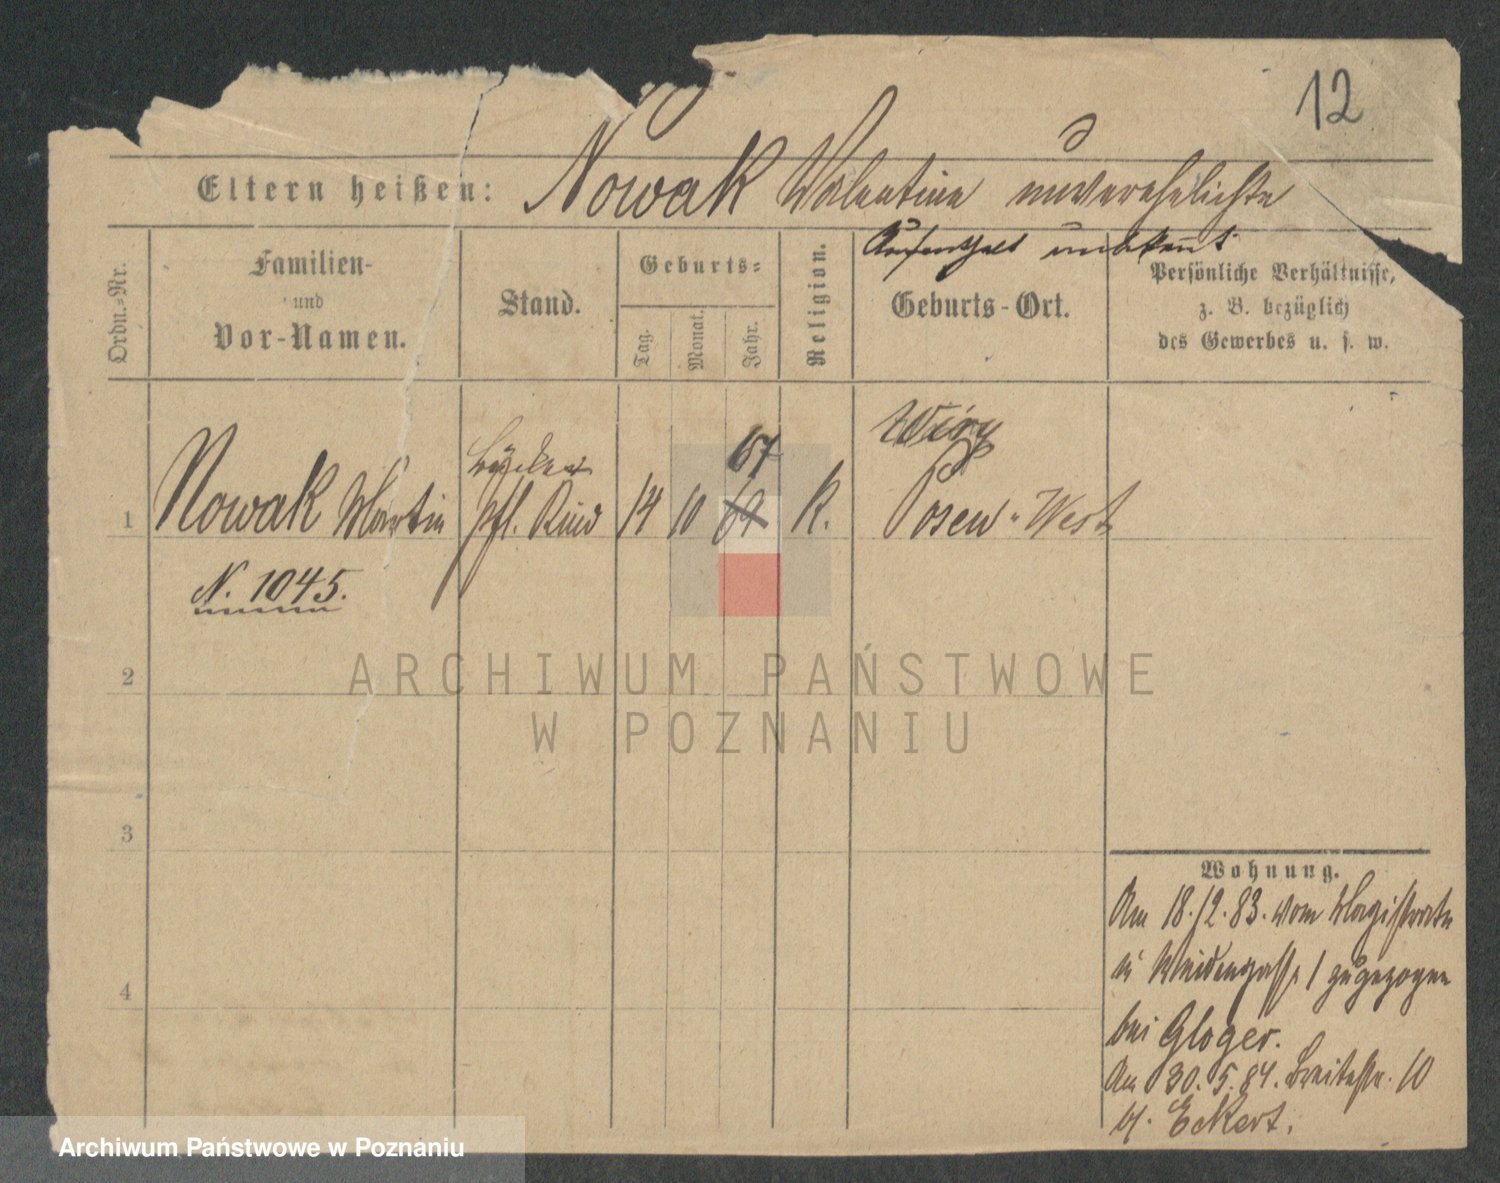 12
Eltern heißen: Nowak Valentine unverehelichte
Aufenthalt unbekannt
Ordn.-Nr.
Familien-
und
Vor-Namen.
Stand.
Geburts-
Tag.
Monat.
Jahr.
Religion.
Geburts-Ort.
Persönliche Verhältnisse,
z. B. bezüglich
des Gewerbes u. s. w.
67
1 Nowak Martin pfl. Kind 14 10 69 K. Posen-West
N. 1045.
2
3
4
Wohnung.
Am 18.12.83. vom Magistrate
Weidengasse 1 zugezogen
bei Gloger.
Am 30.5.84. Breitestr. 10
b. Eckert.
ARCHIWUM PAŃSTWOWE
W POZNANIU
Archiwum Państwowe w Poznaniu